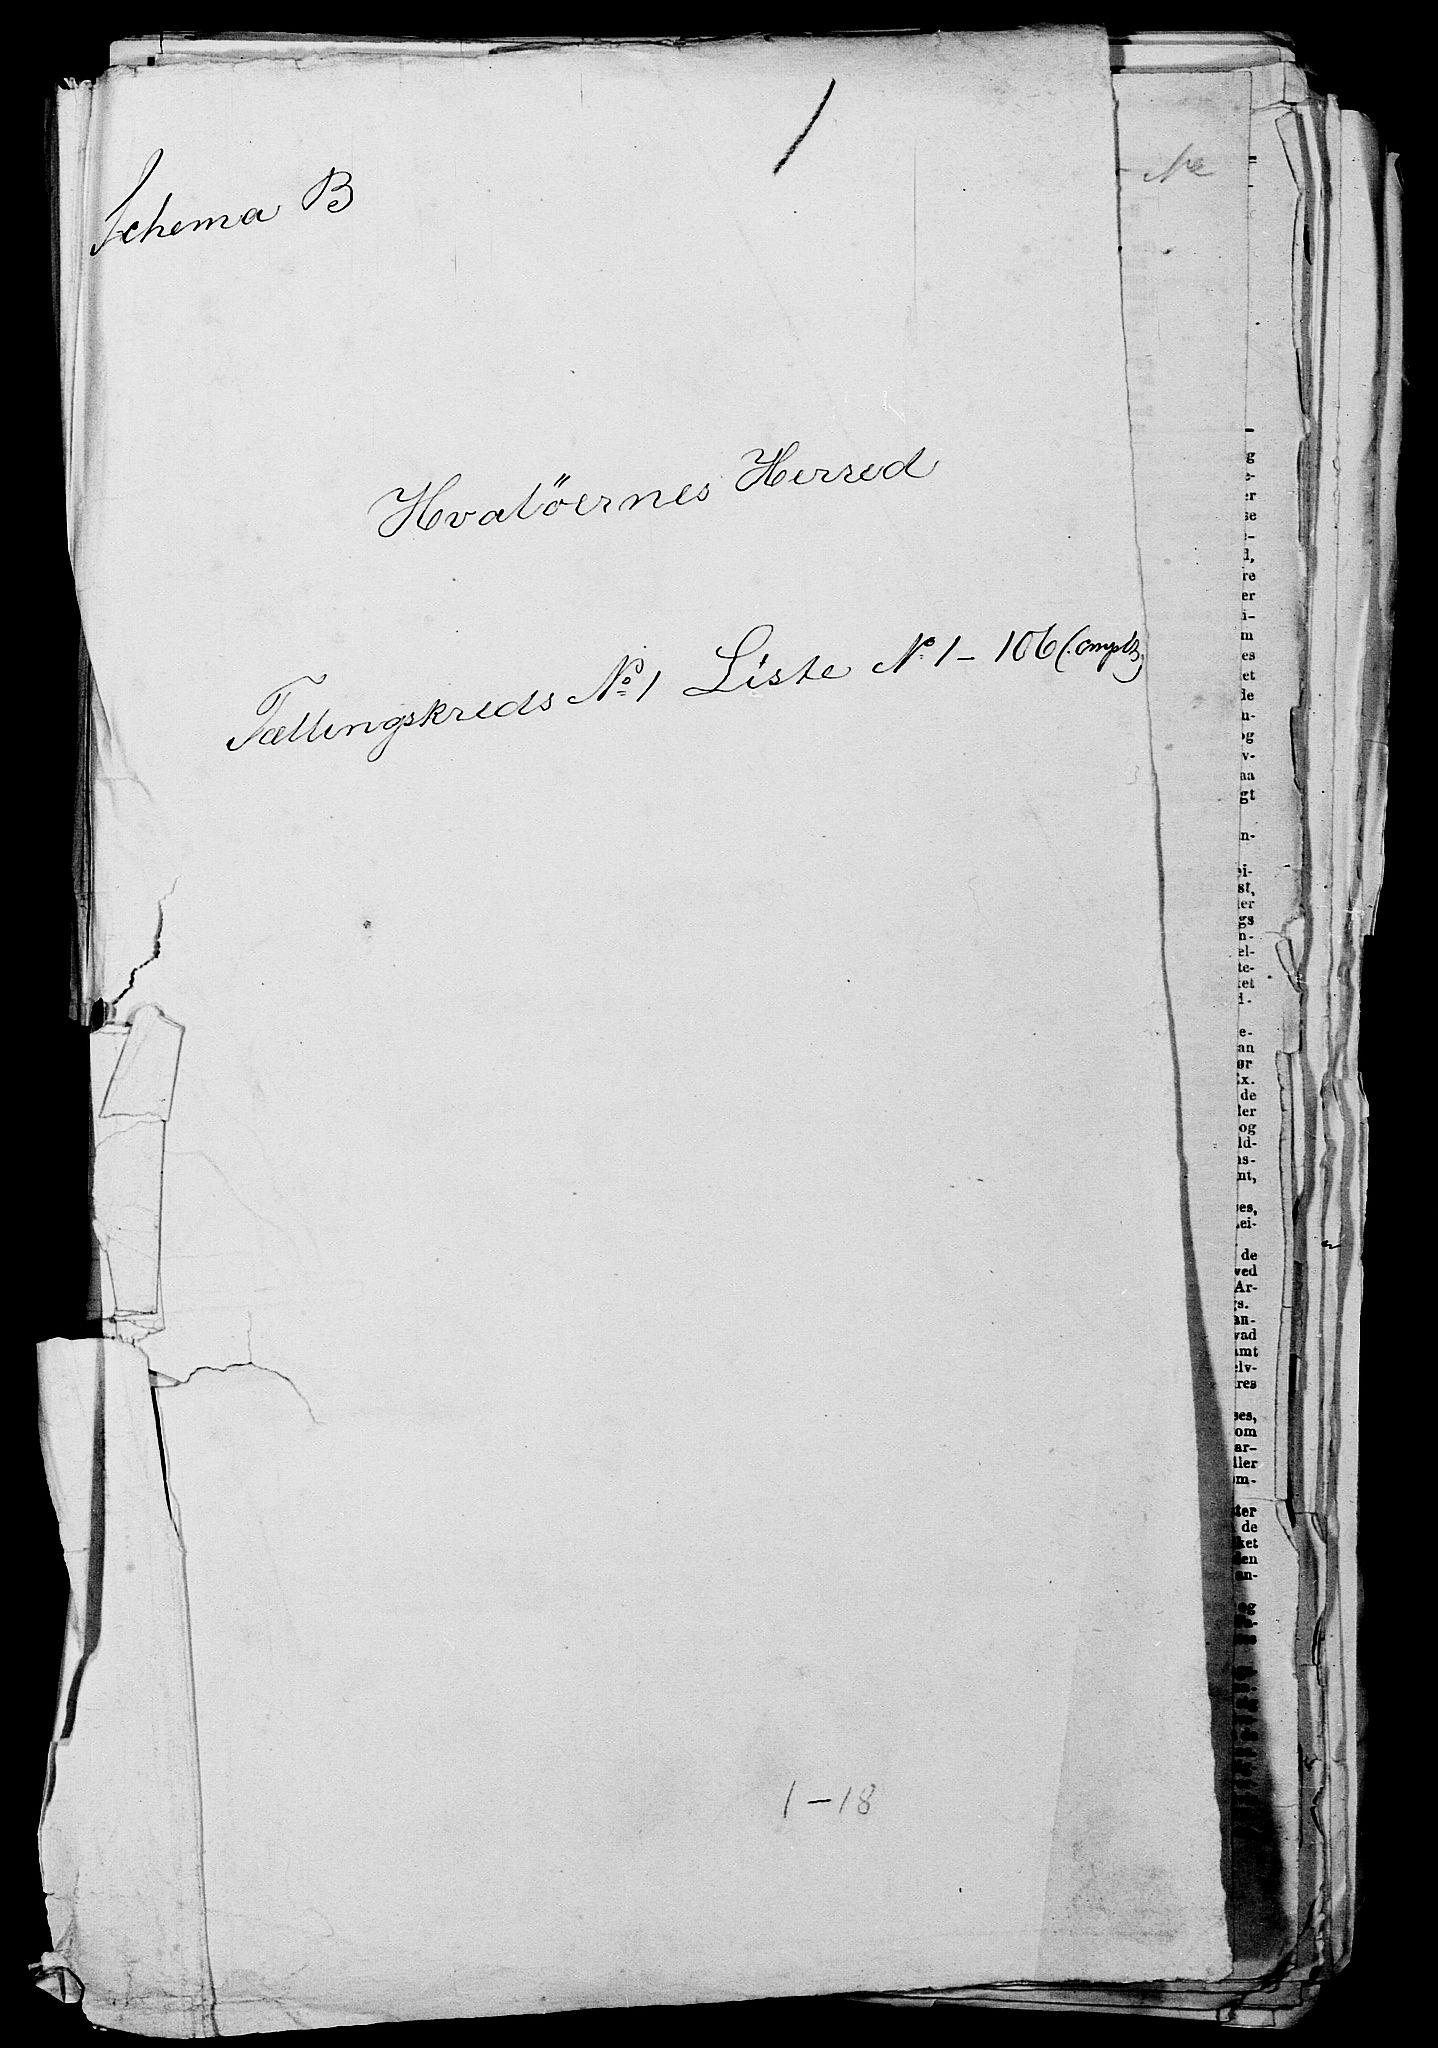 1
Schema B
Hvaløernes Herred
Tællingskreds No 1 Liste No 1 – 106 (complt)
1–18